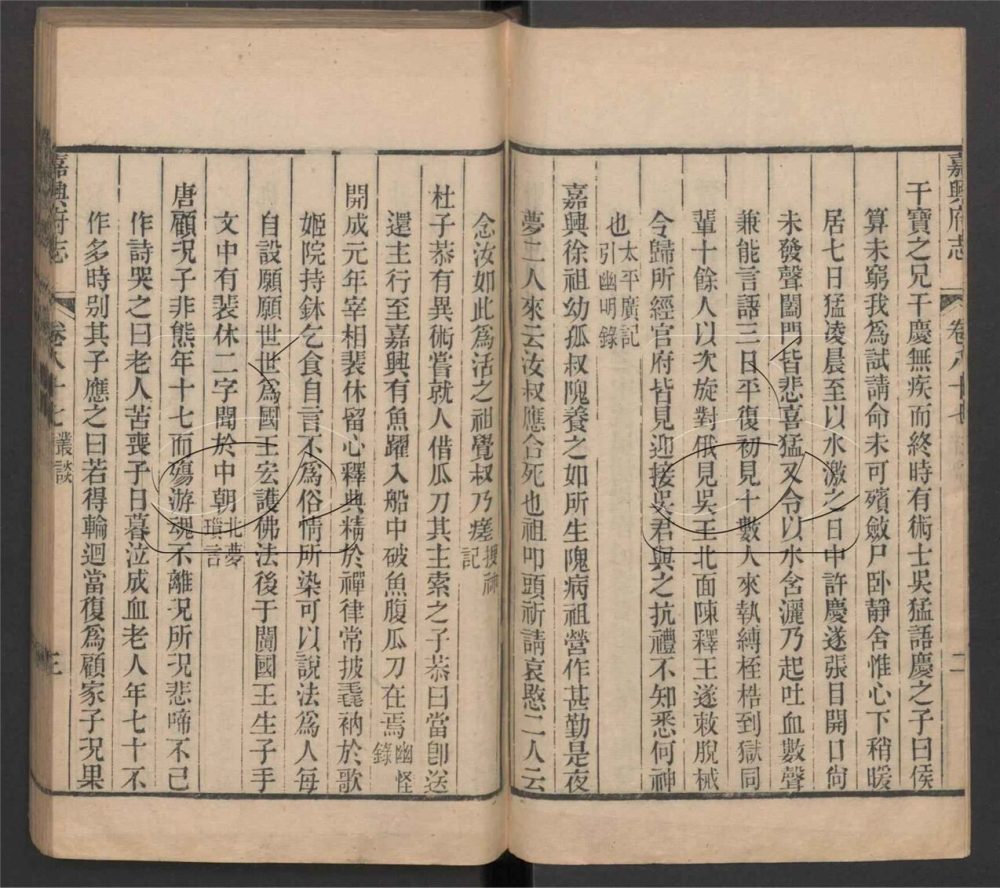 嘉興府志 卷八十七 二
干寶之兄干慶無疾而終時有術士吳猛語慶之子曰侯
算未窮我爲試請命未可殯斂尸卧靜舍惟心下稍暖
居七日猛凌晨至以水激之日中許慶遂張目開口尙
未發聲闔門皆悲喜猛又令以水含灑乃起吐血數聲
兼能言語三日平復初見十數人來執縛桎梏到獄同
輩十餘人以次旋對俄見吳王北面陳釋王遂敕脫械
令歸所經官府皆見迎接吳君與之抗禮不知悉何神
也太平廣記引幽明錄
嘉興徐祖幼孤叔隗養之如所生隗病祖營作甚勤是夜
夢二人來云汝叔應合死也祖叩頭祈請哀愍二人云
念汝如此爲活之祖覺叔乃瘥搜神記
杜子恭有異術嘗就人借瓜刀其主索之子恭曰當卽送
還主行至嘉興有魚躍入船中破魚腹瓜刀在焉幽怪錄
開成元年宰相裴休留心釋典精於禪律常披毳衲於歌
姬院持鉢乞食自言不爲俗情所染可以說法爲人每
自設願願世世爲國王宏護佛法後于闐國王生子手
文中有裴休二字聞於中朝北夢瑣言
唐顧況子非熊年十七而殤游魂不離況所況悲啼不已
作詩哭之曰老人苦喪子日暮泣成血老人年七十不
作多時別其子應之曰若得輪迴當復爲顧家子況果
嘉興府志 卷八十七 叢談 三